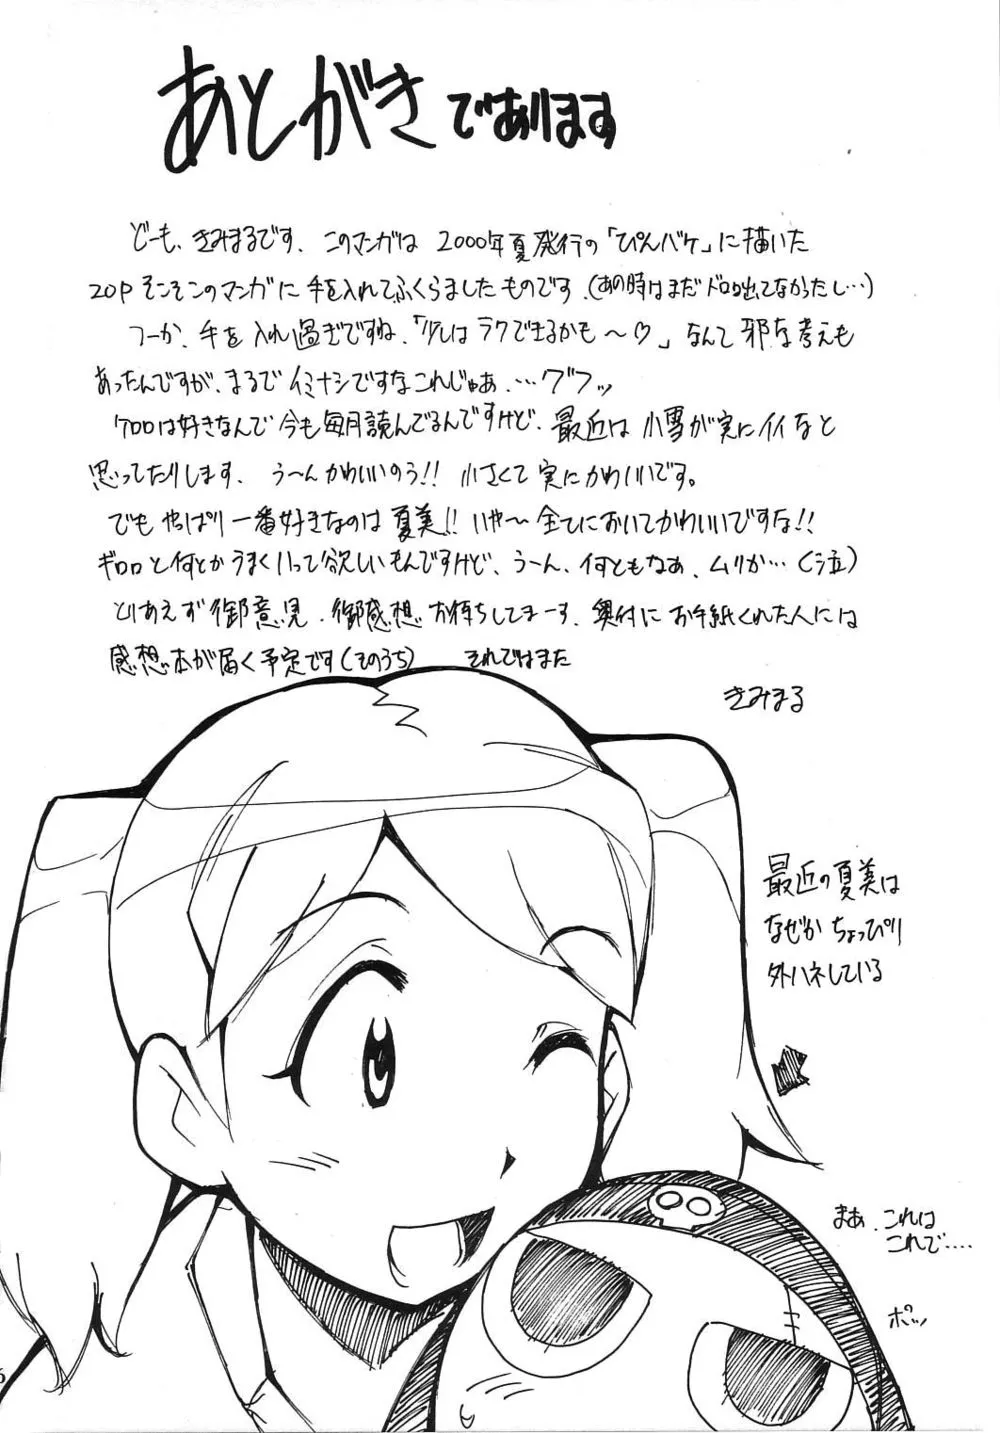 あとがきであります
どーも、きみまるです、このマンガは2000年夏発行の「ぴんバケ」に描いた
20Pそこそこのマンガに手を入れてふくらましたものです。(あの時はまだドロロ出てなかったし…)
つーか、手を入れ過ぎですね、「少しはラクできるかも～♡」なんて邪な考えも
あったんですが、まるでイミナシですなこれじゃあ、…グフッ
ケロロは好きなんで今も毎月読んでるんですけど、最近は小雪が実にイイなと
思ってたりします、う～んかわいいのう!! 小さくて実にかわいいです。
でもやっぱり一番好きなのは夏美!! いや～全てにおいてかわいいですな!!
ギロロと何とかうまくいって欲しいもんですけど、う～ん、何ともなあ、ムリか…(泣)
とりあえず御意見、御感想お待ちしてまーす、奥付にお手紙くれた人には
感想本が届く予定です(そのうち) それではまた
きみまる
最近の夏美は
なぜかちょっぴり
外ハネしている
まあ、これは
これで‥‥
ポッ
6